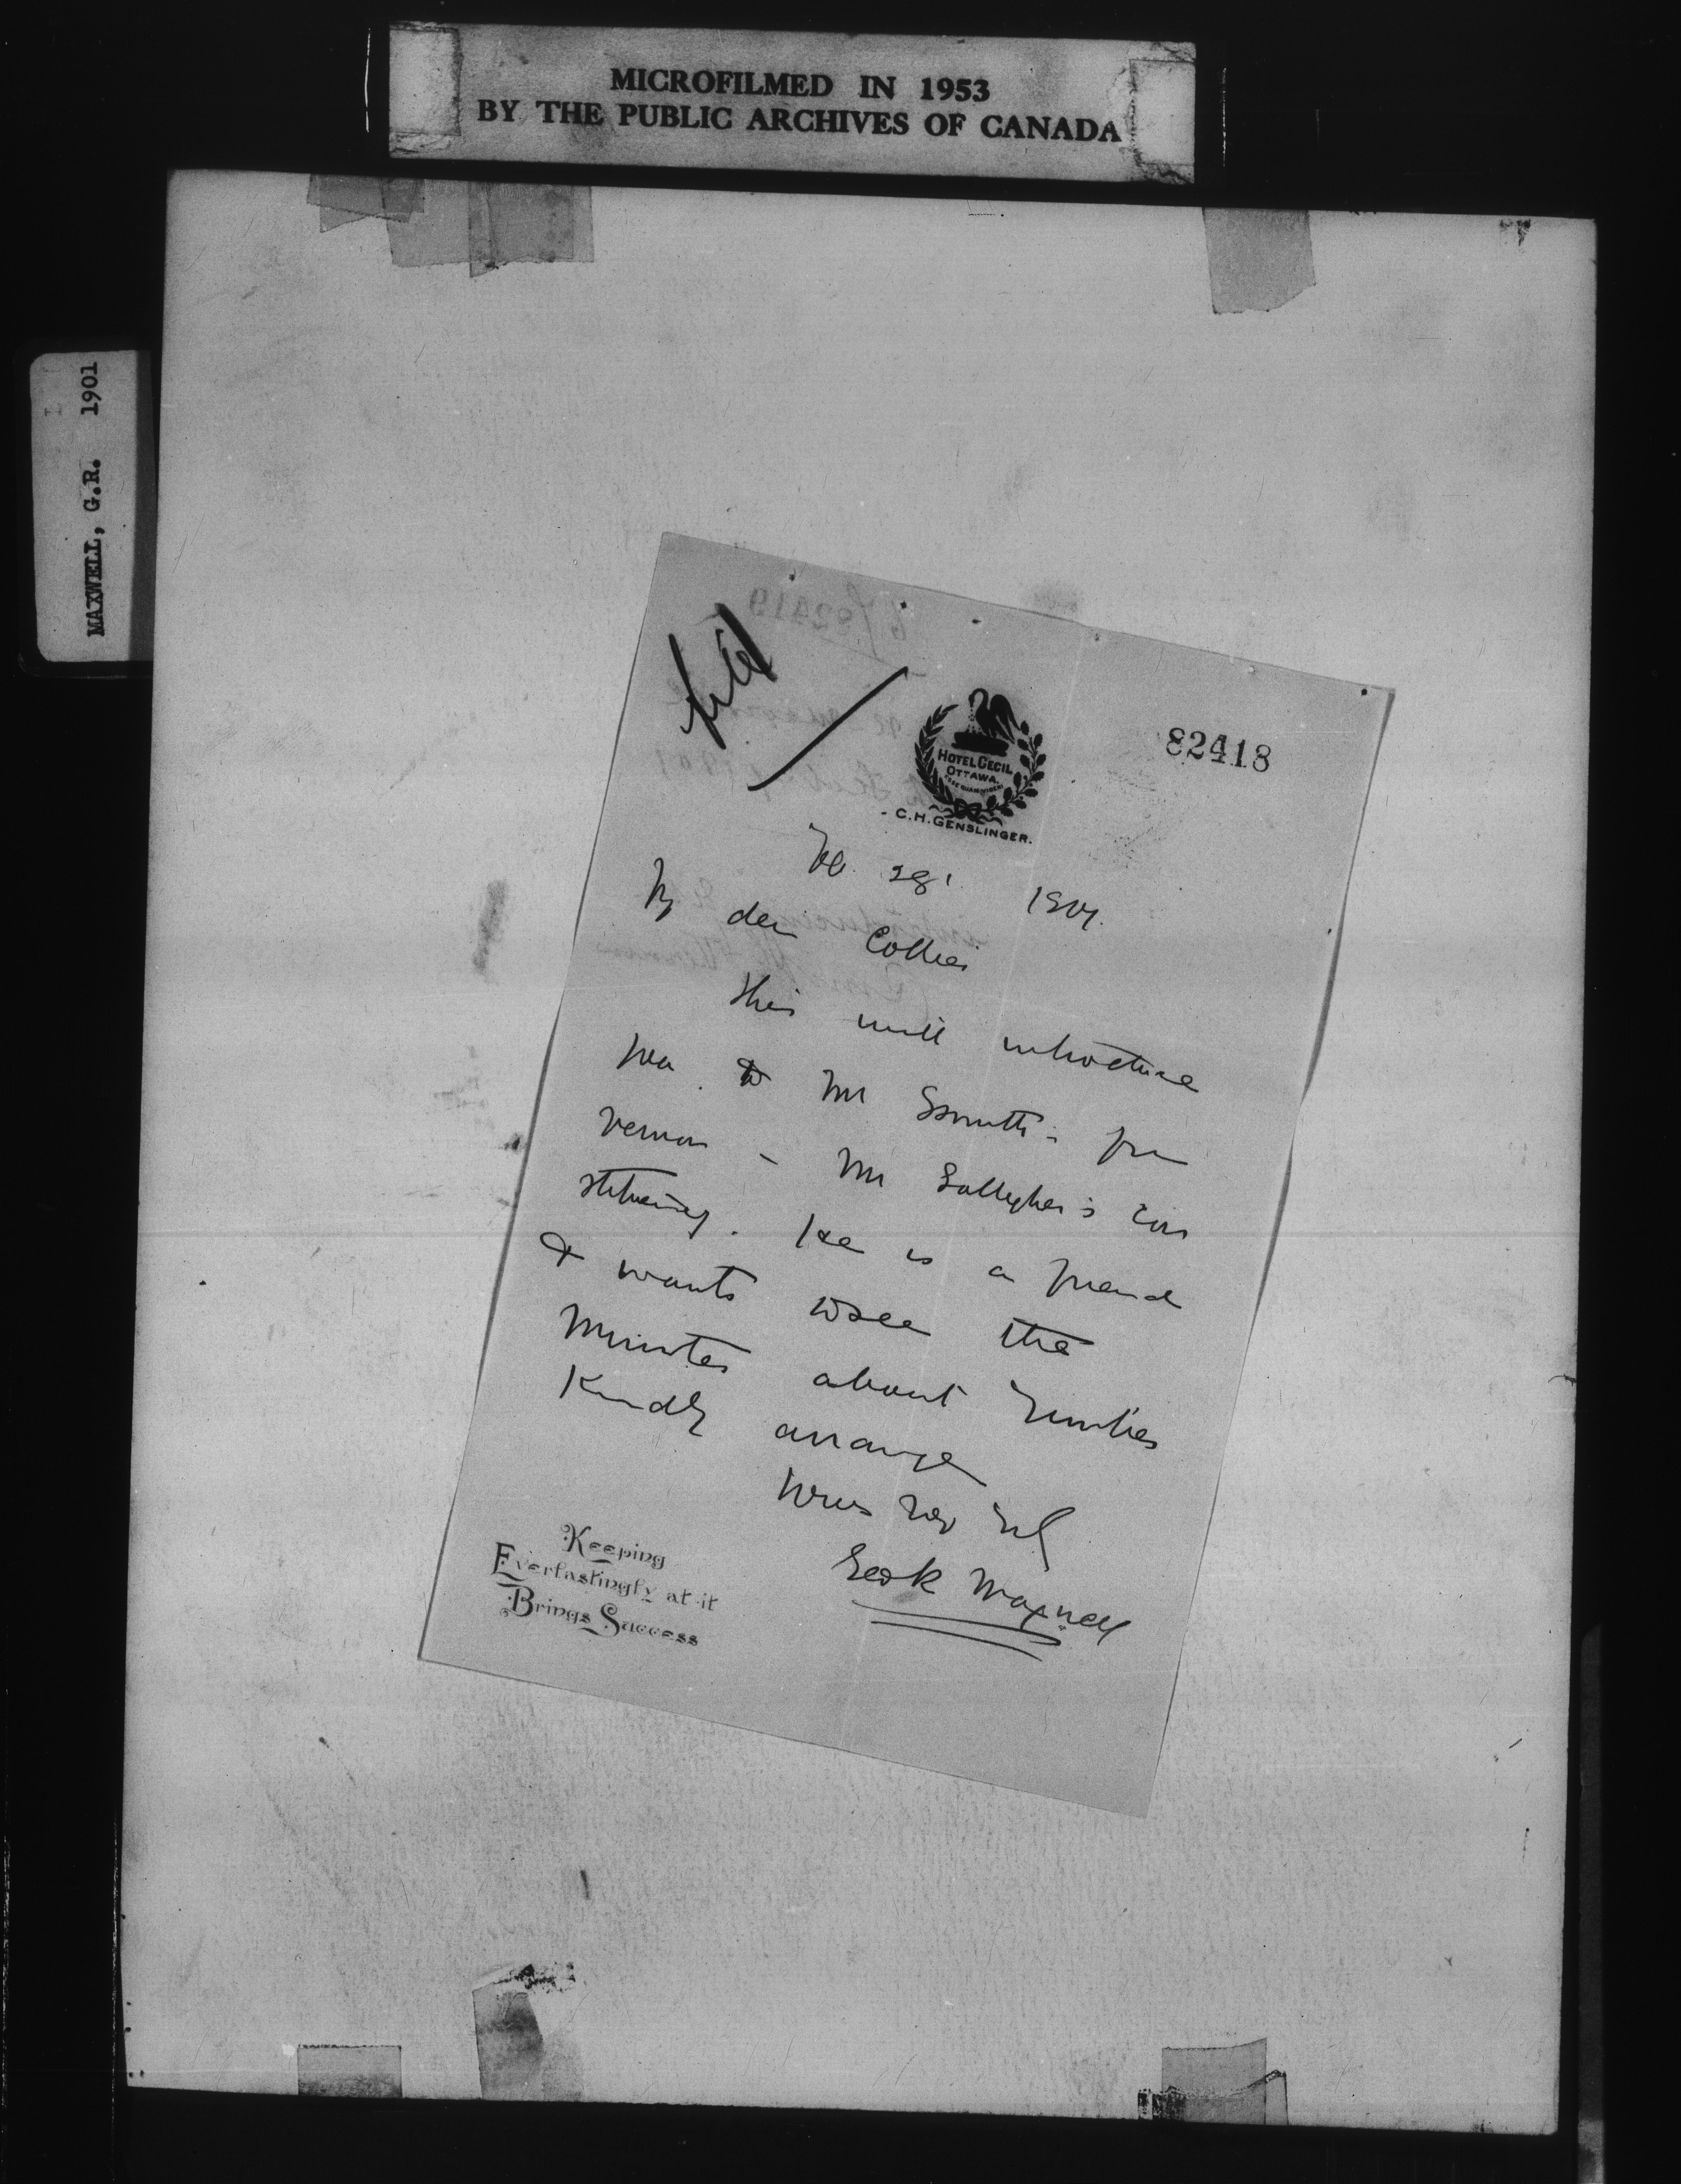 MICROFILMED IN 1953
BY THE PUBLIC ARCHIVES OF CANADA
MAXWELL, G.R. 1901
82419
file
HOTEL CECIL
OTTAWA.
C.H. GENSLINGER.
82418
28' 1901.
My dear Collier
This will introduce
you to Mr Smith - from
Vernon - Mr Gallagher's con
stituency. He is a friend
& wants to see the
Minister about
Kindly arrange
Yours
Geo R Maxwell
Keeping
Everlastingly at it
Brings Success